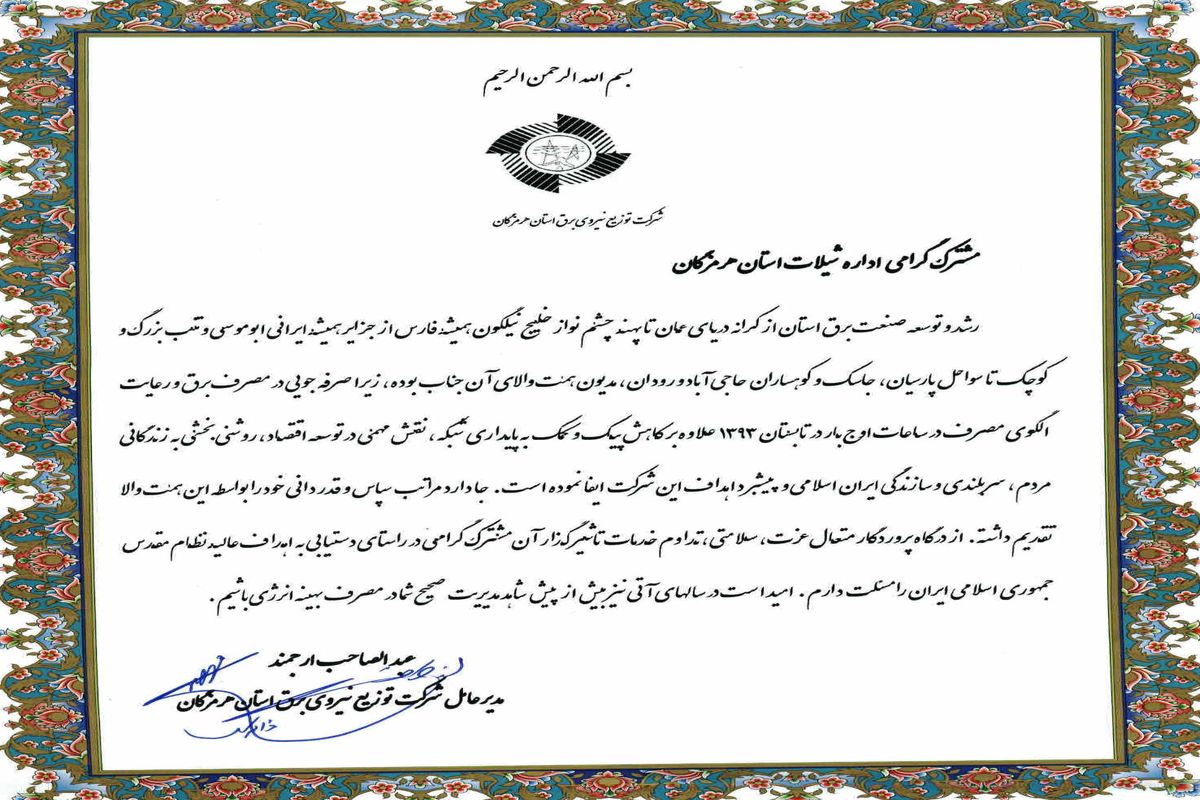 بسم الله الرحمن الرحیم
شرکت توزیع نیروی برق استان هرمزگان
مشترک گرامی اداره شیلات استان هرمزگان
رشد و توسعه صنعت برق استان از کرانه دریای عمان تا پهنه چشم نواز خلیج نیلگون همیشه فارس از جزایر همیشه ایرانی ابوموسی و تنب بزرگ و
کوچک تا سواحل پارسیان، جاسک و کوهساران حاجی آباد و رودان، مدیون همت والای آن جناب بوده، زیرا صرفه جویی در مصرف برق و رعایت
الگوی مصرف در ساعات اوج بار در تابستان ۱۳۹۳ علاوه بر کاهش پیک و کمک به پایداری شبکه، نقش مهمی در توسعه اقتصاد، روشنی بخشی به زندگانی
مردم، سربلندی و سازندگی ایران اسلامی و پیشبرد اهداف این شرکت ایفا نموده است. جا دارد مراتب سپاس و قدردانی خود را بواسطه این همت والا
تقدیم داشته. از درگاه پروردگار متعال عزت، سلامتی، تداوم خدمات تاثیرگذار آن مشترک گرامی در راستای دستیابی به اهداف عالیه نظام مقدس
جمهوری اسلامی ایران را مسئلت دارم. امید است در سالهای آتی نیز بیش از پیش شاهد مدیریت صحیح شما در مصرف بهینه انرژی باشیم.
عبدالصاحب ارجمند
مدیرعامل شرکت توزیع نیروی برق استان هرمزگان